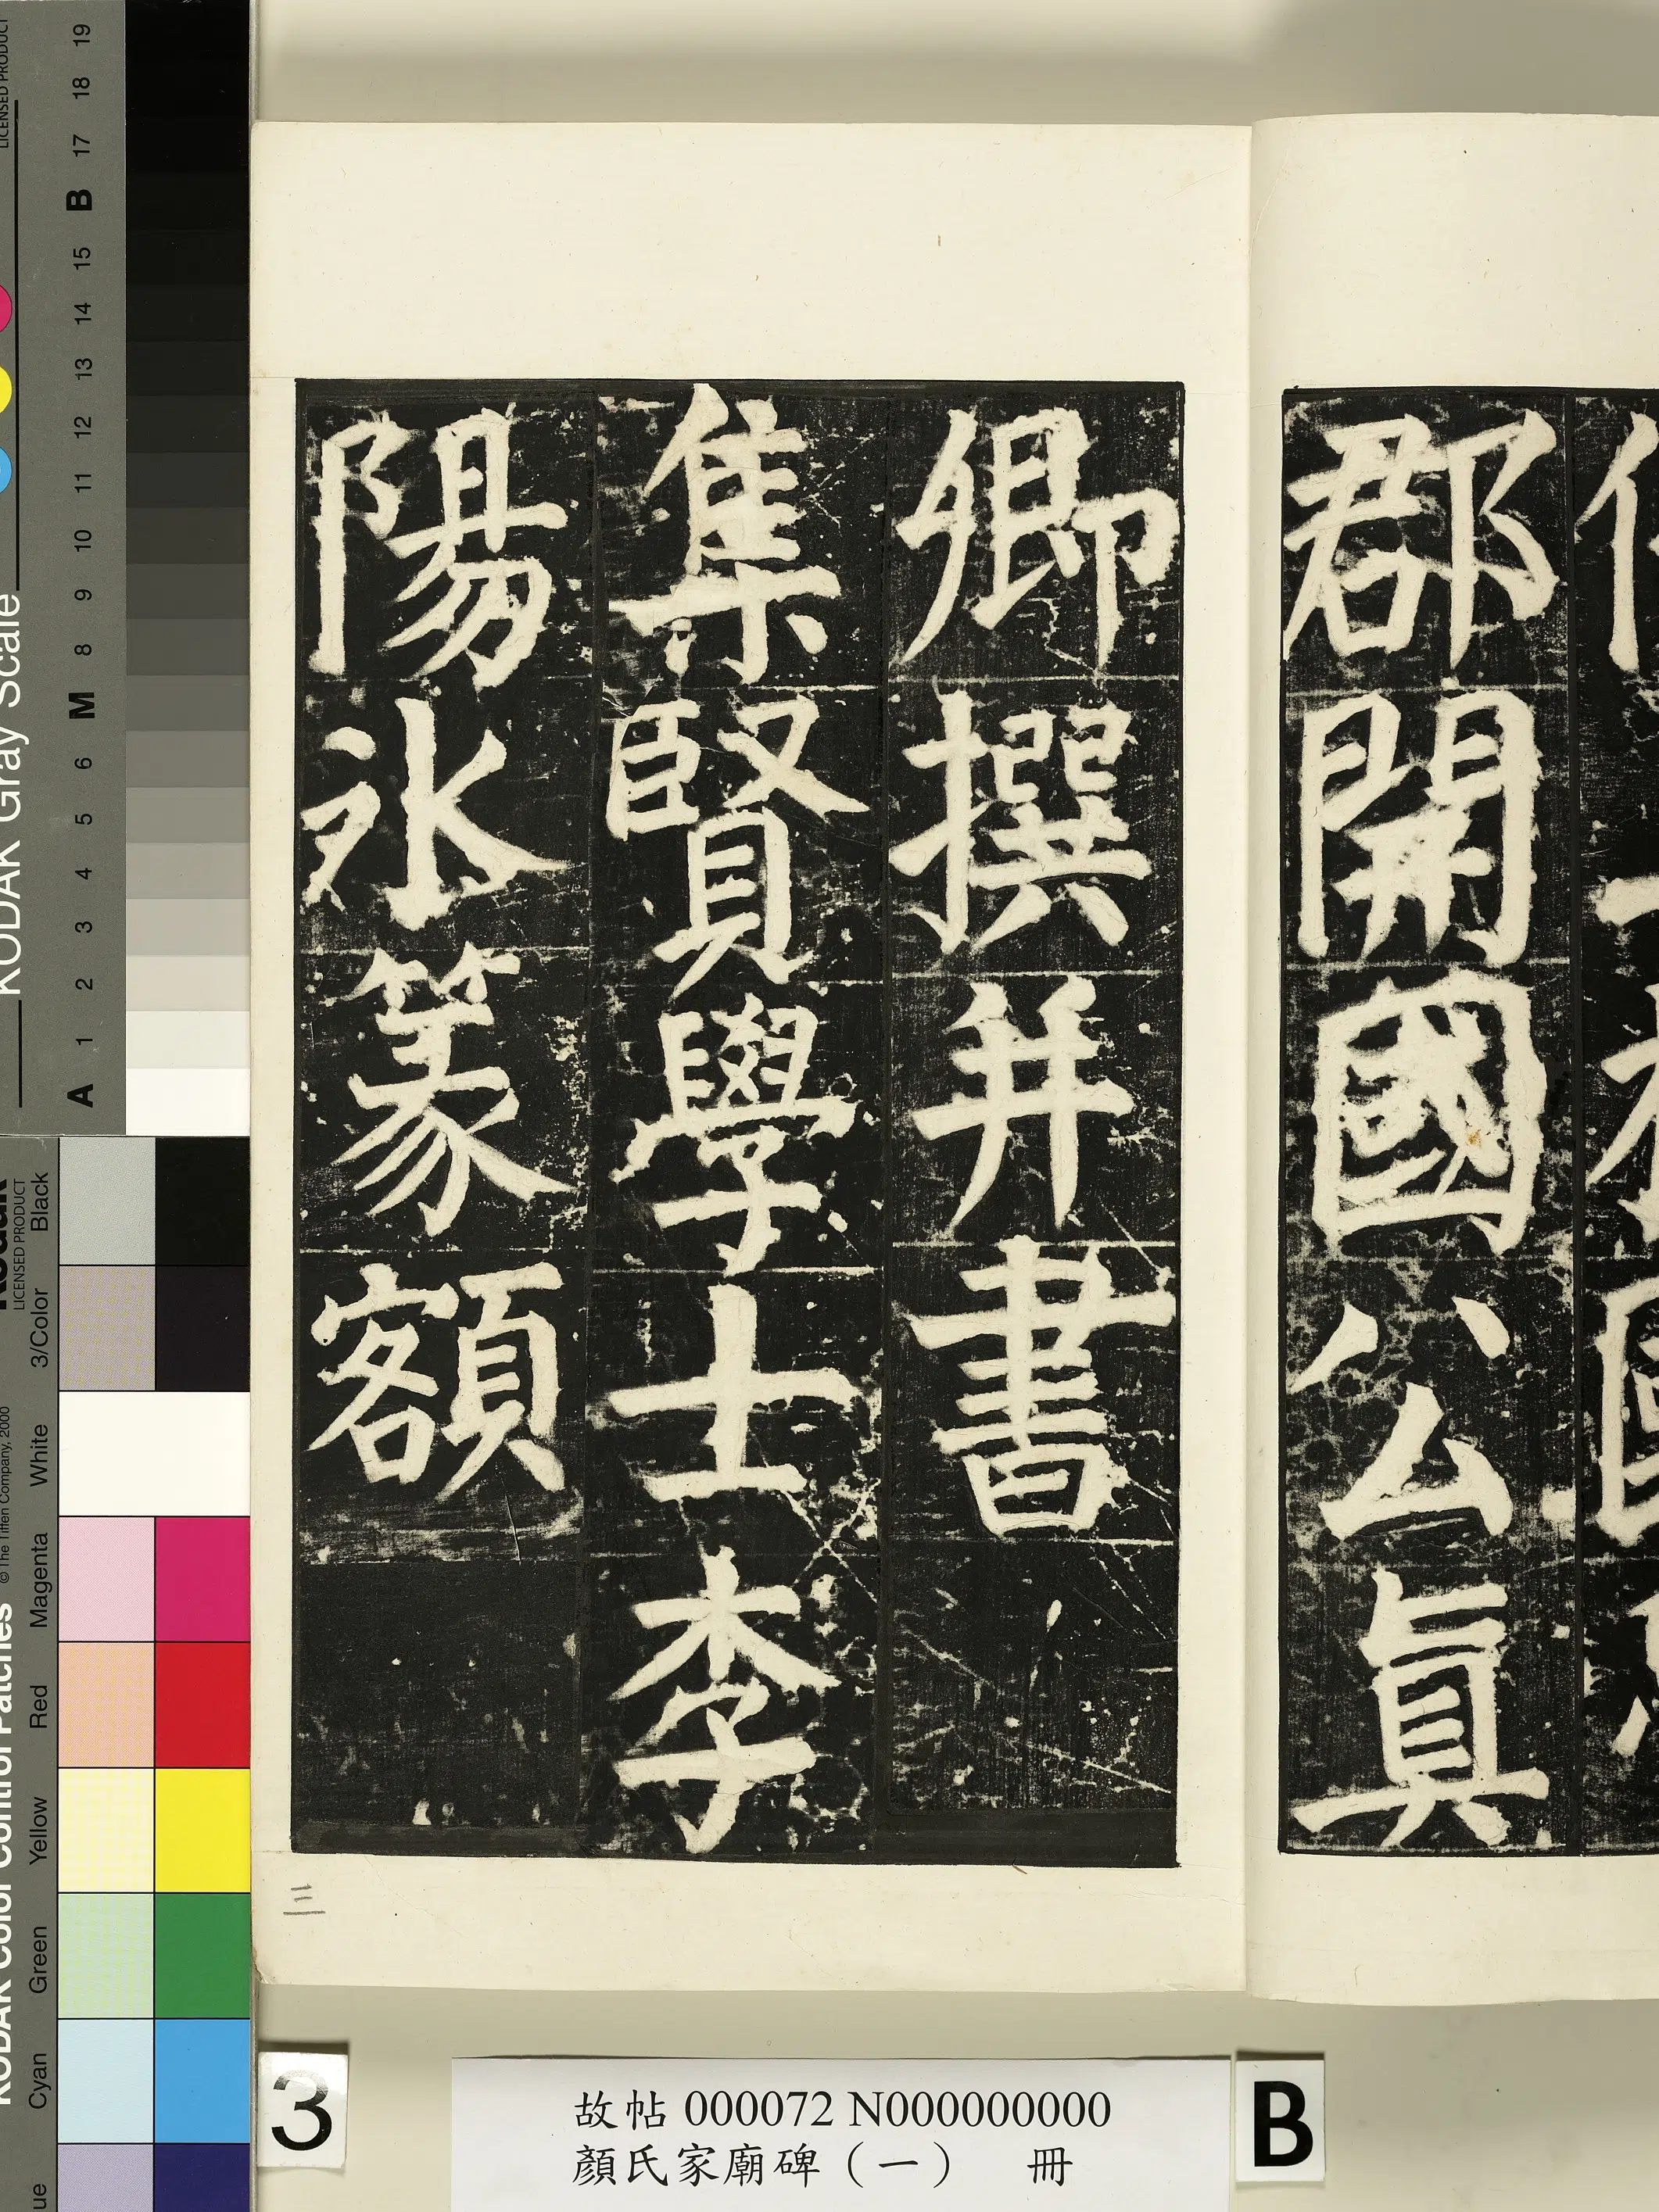 郡開國公真
卿撰并書
集賢學士李
陽冰篆額
三
3
故帖 000072 N000000000
顏氏家廟碑（一） 冊
B
KODAK Gray Scale
LICENSED PRODUCT
A 1 2 3 4 5 6 M 8 9 10 11 12 13 14 15 B 17 18 19
KODAK Color Control Patches
© The Tiffen Company, 2000
Kodak
LICENSED PRODUCT
Cyan Green Yellow Red Magenta White 3/Color Black